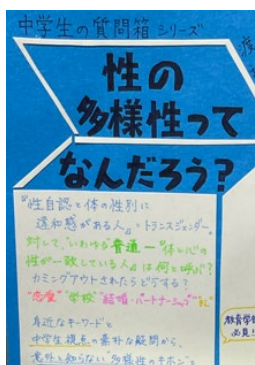 中学生の質問箱シリーズ
渡
性の
多様性って
なんだろう？
"性自認と体の性別に
違和感がある人"、トランスジェンダー。
対して、"いわゆる普通ー『体と心の
性が一致している人』は何と呼ぶ？
カミングアウトされたらどうする？
"恋愛" "学校" "結婚・パートナーシップ" "礼"
身近なキーワードと
中学生視点の素朴な疑問から、
意外と知らない"多様性のキホン"と
教育学部
必見！